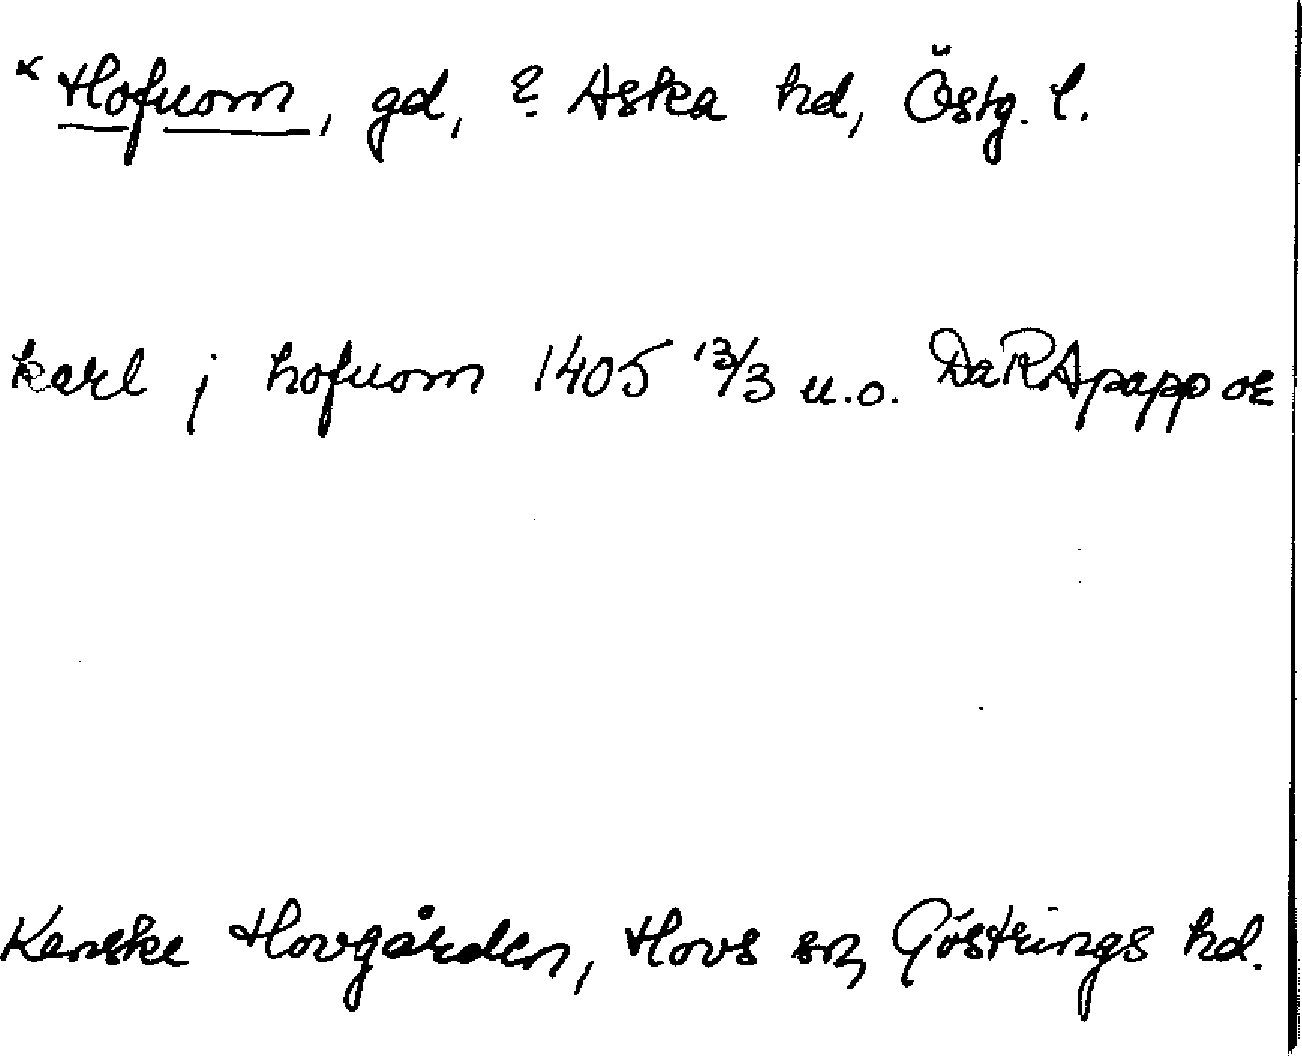 × Hofuom, gd, ? Aska hd, Östg. l.
karl j hofuom 1405 13/3 u.o. DaRApapp or
Kanske Hovgården, Hovs sn, Göstrings hd.